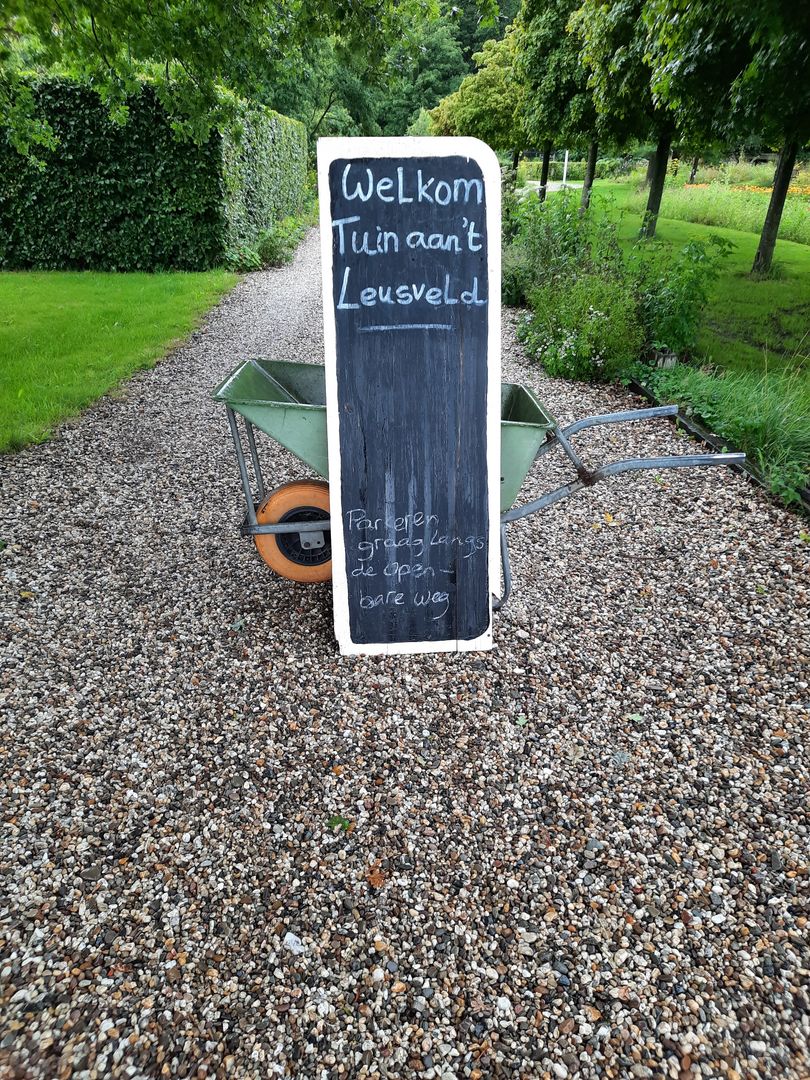 Welkom
Tuin aan't
Leusveld
Parkeren
graag langs
de open-
bare weg